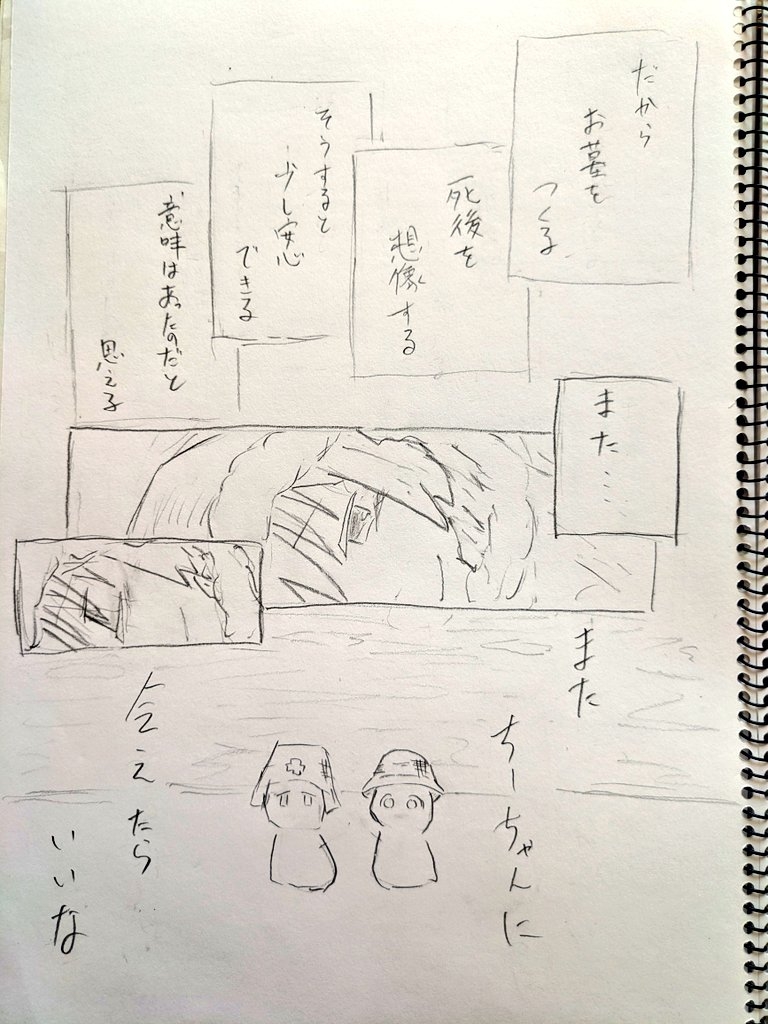 だから
お墓を
つくる
死後を
想像する
そうすると
少し安心
できる
意味はあったのだと
思える
また…
また
ちーちゃんに
会えたら
いいな